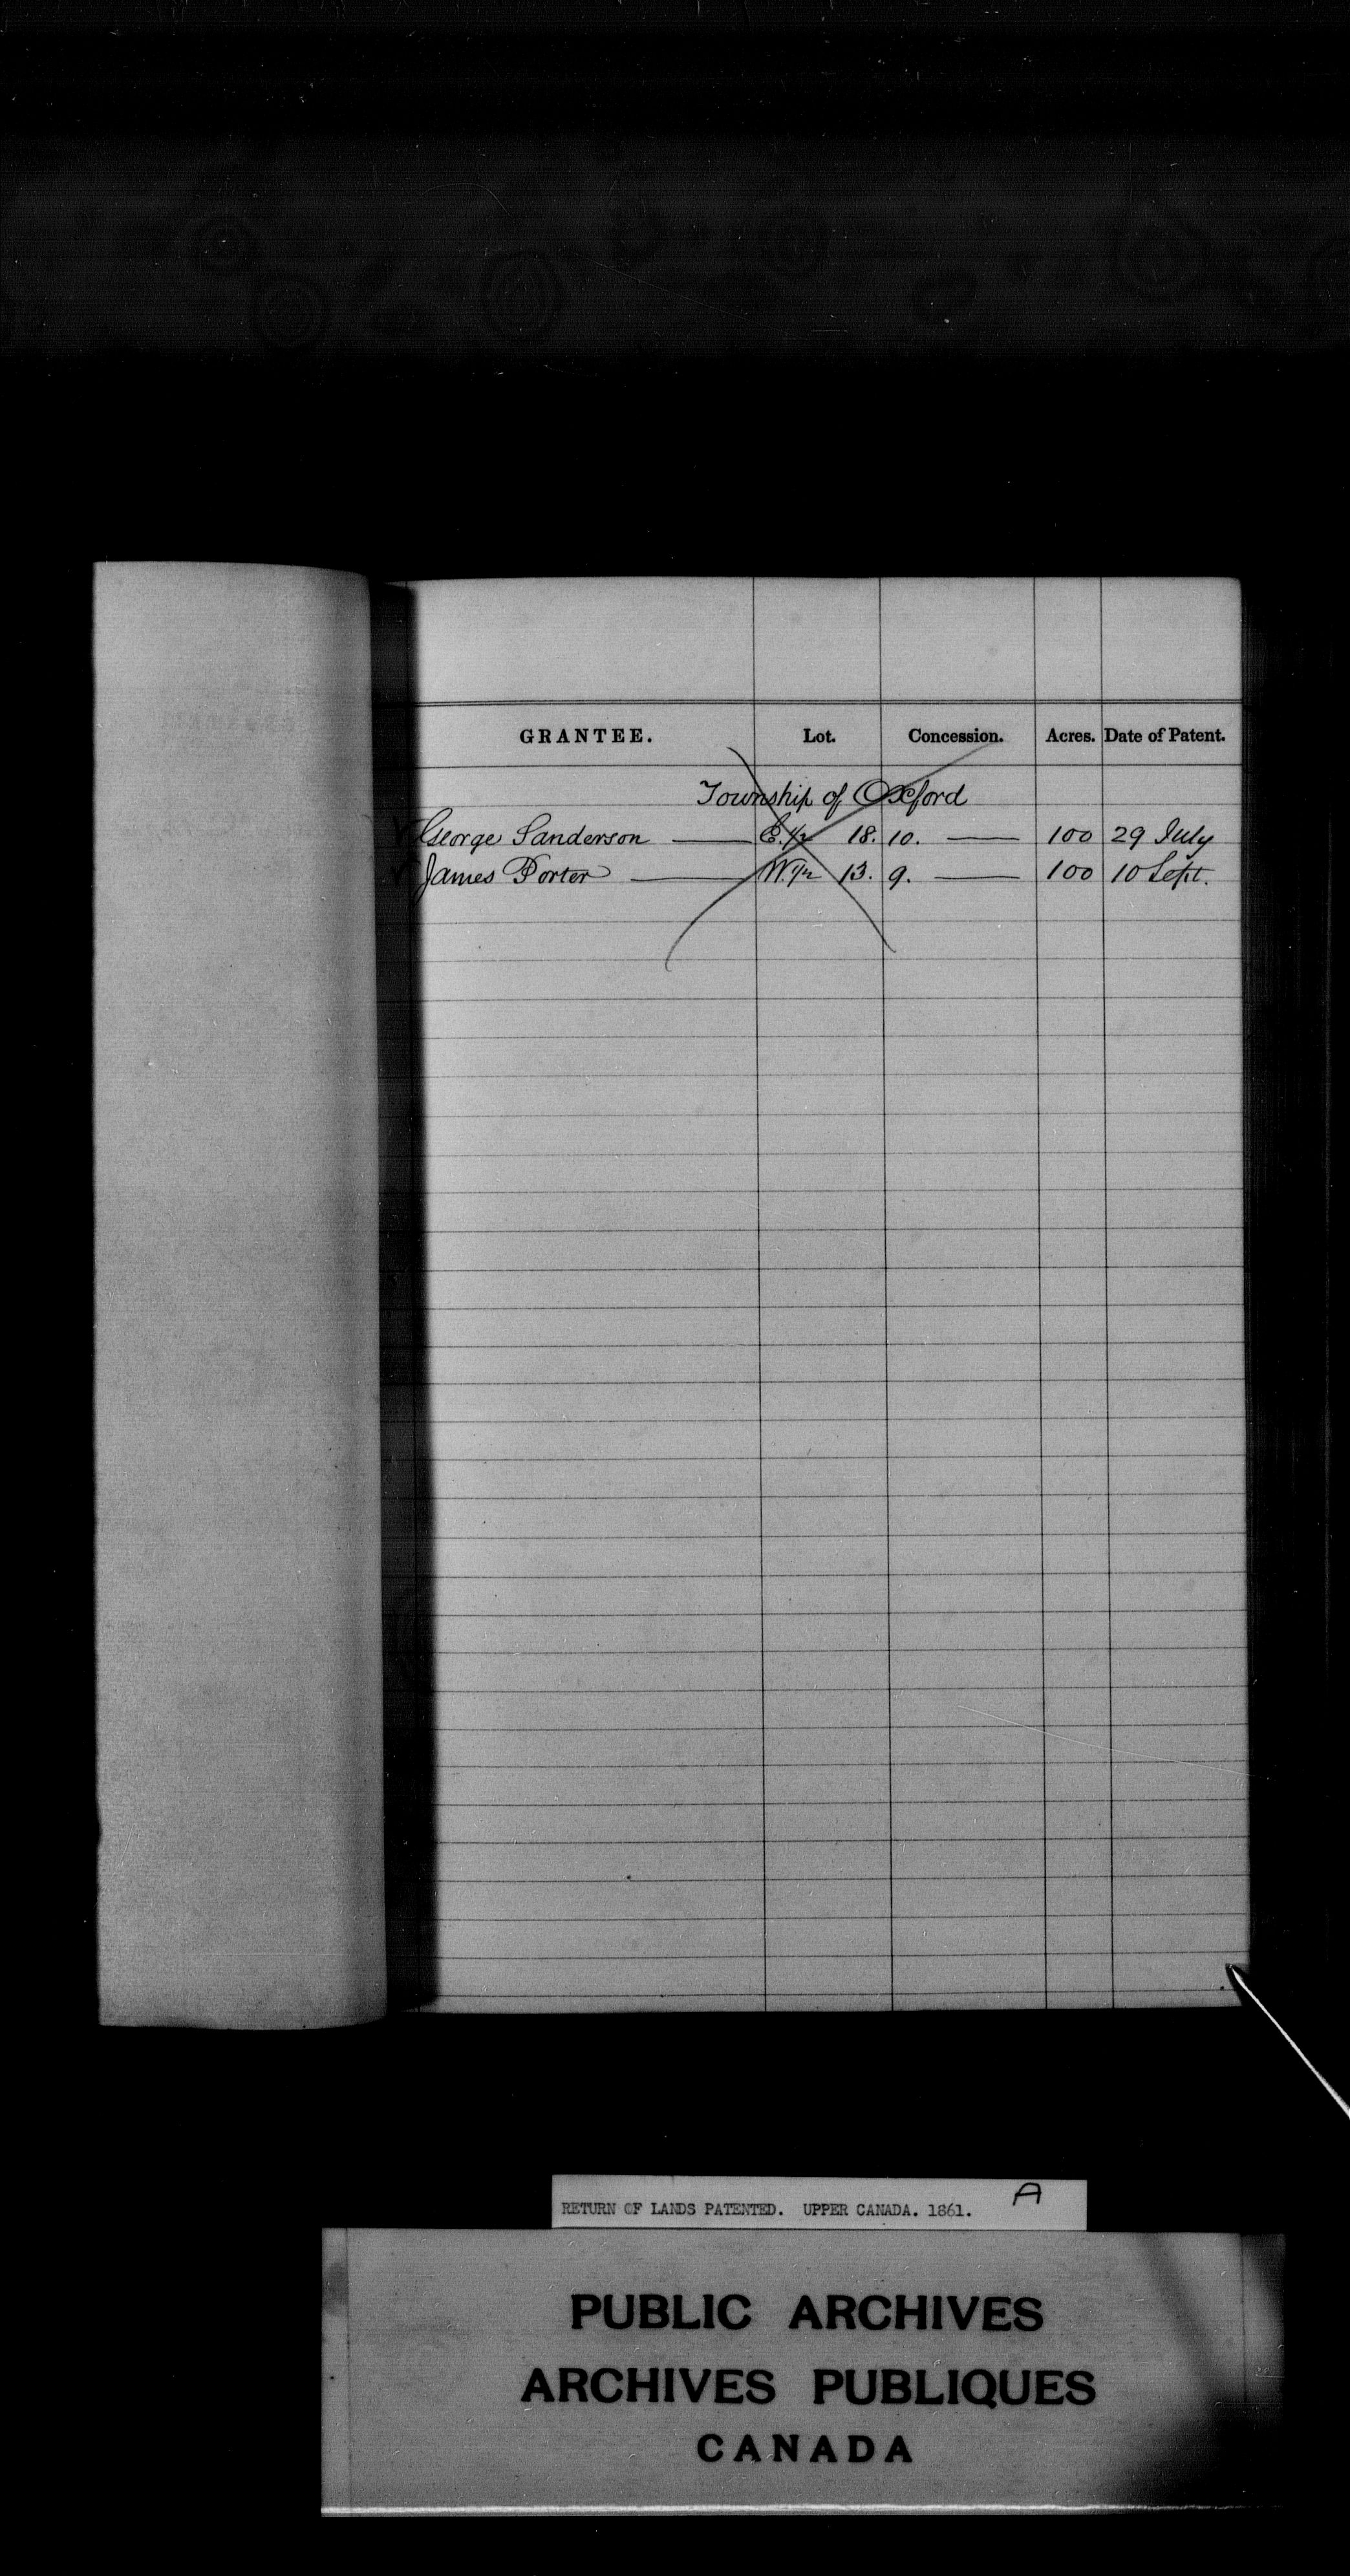 GRANTEE. Lot. Concession. Acres. Date of Patent.
Township of Oxford
George Sanderson E. 1/2 18. 10. 100 29 July
James Porter W. 1/2 13. 9. 100 10 Sept.
RETURN OF LANDS PATENTED. UPPER CANADA. 1861. A
PUBLIC ARCHIVES
ARCHIVES PUBLIQUES
CANADA